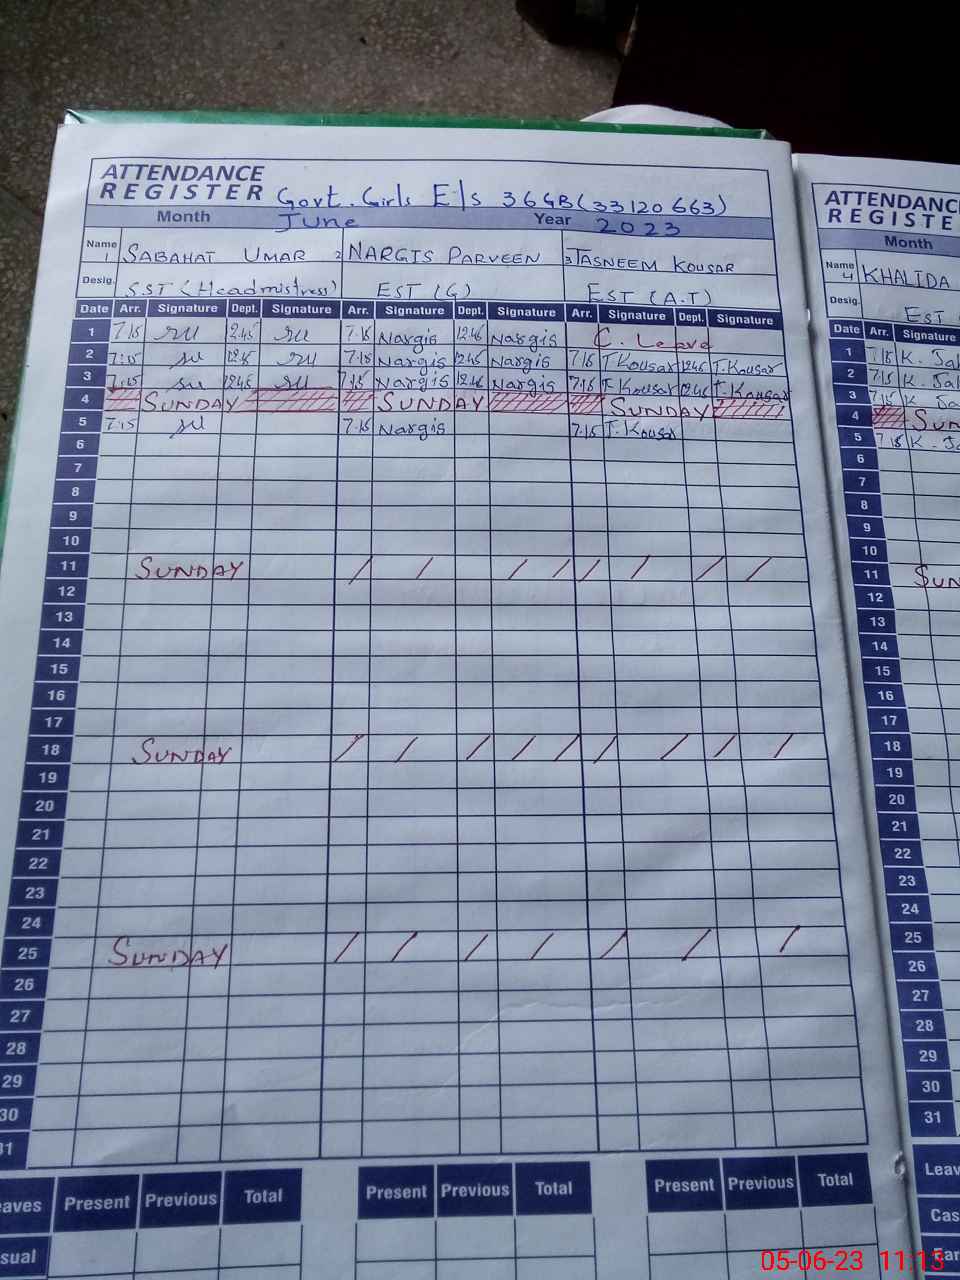 ATTENDANCE
REGISTER Govt. Girls E/S 36GB(33120663)
Month June Year 2023
Name 1 SABAHAT UMAR 2 NARGIS PARVEEN 3 TASNEEM KOUSAR
Desig. SST (Headmistress) EST (G) EST (A.T)
Date Arr. Signature Dept. Signature Arr. Signature Dept. Signature Arr. Signature Dept. Signature
1 7.15 12.45 7.15 Nargis 12.45 Nargis C. Leave
2 7:15 12.45 7.15 Nargis 12.45 Nargis 7.15 T.Kousar 12.45 T.Kousar
3 7:15 12.45 7.15 Nargis 12.45 Nargis 7.15 T.Kousar 12.45 T.Kousar
4 SUNDAY SUNDAY SUNDAY
5 7.15 7.15 Nargis 7.15 T.Kousar
6
7
8
9
10
11 SUNDAY / / / / / / / /
12
13
14
15
16
17
18 SUNDAY / / / / / / / / /
19
20
21
22
23
24
25 SUNDAY / / / / / / /
26
27
28
29
30
31
eaves Present Previous Total Present Previous Total Present Previous Total
sual
ATTENDANC
REGISTE
Month
Name 4 KHALIDA
Desig. EST
Date Arr. Signature
1 7.15 K.
2 7.15 K.
3 7.15 K.
4 SUN
5 7.15 K.
6
7
8
9
10
11 SUN
12
13
14
15
16
17
18
19
20
21
22
23
24
25
26
27
28
29
30
31
Leav
Cas
Ear
05-06-23 11:13